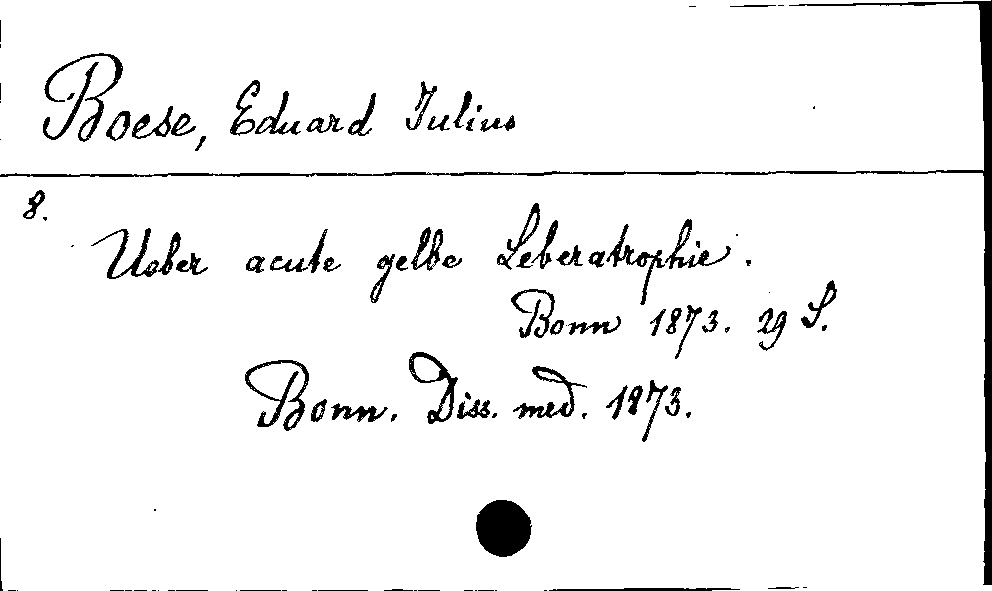 Boese, Eduard Julius
8.
Ueber acute gelbe Leberatrophie.
Bonn 1873. 29 S.
Bonn. Diss. med. 1873.